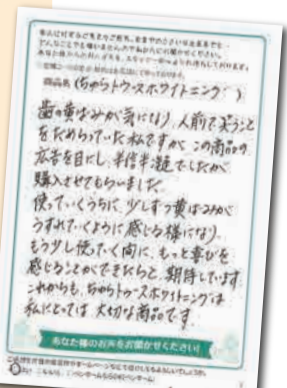 商品名(ちからトゥースホワイトニング)
歯の黄ばみが気になり、人前で笑うこと
をためらっていた私ですが、この商品の
広告を目にし、半信半疑でしたが
購入させてもらいました。
使っていくうちに、少しずつ黄ばみが
うすれていくように感じる様になり、
もう少し使っていく間に、もっと喜びを
感じることができたらと、期待しています。
これからも、ちからトゥースホワイトニングは
私にとっては、大切な商品です。
あなた様のお声をお聞かせください!